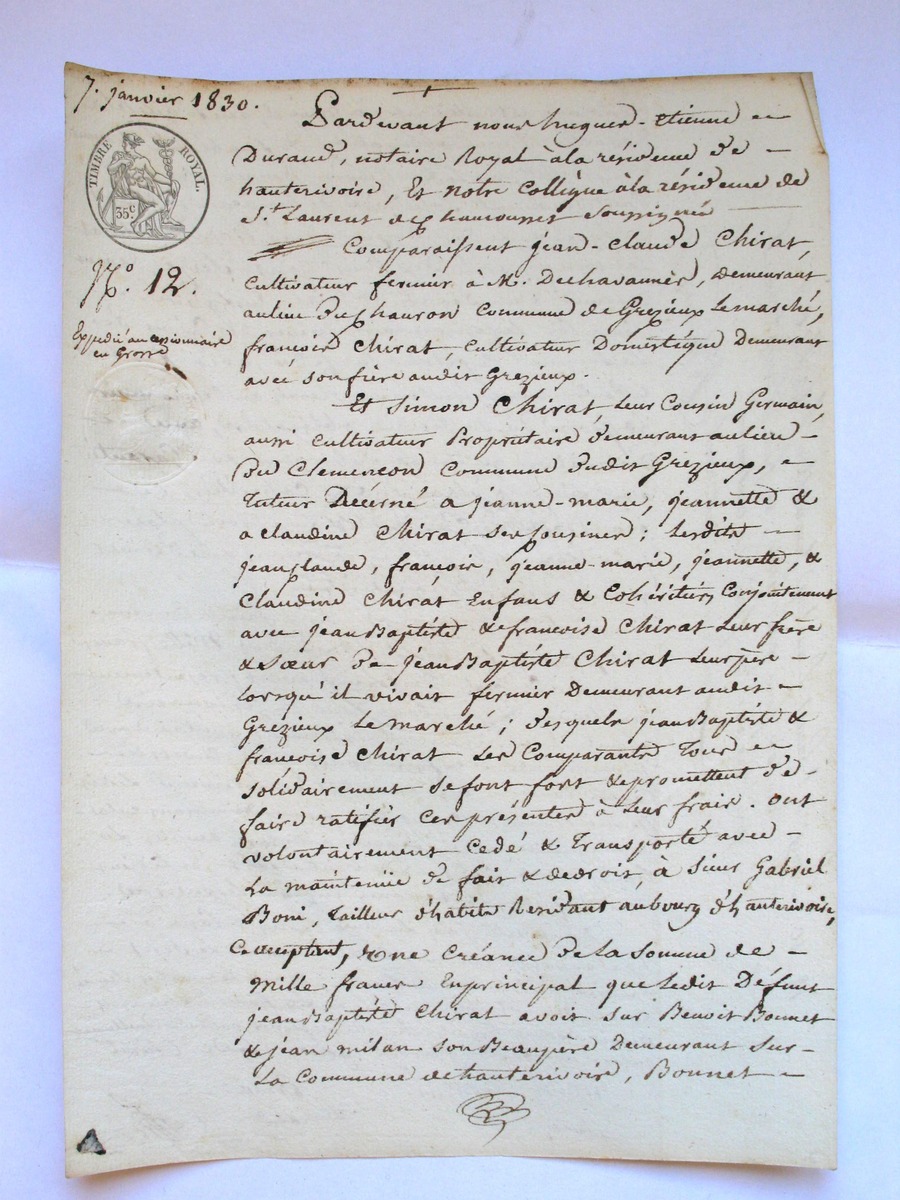 7. janvier 1830.
TIMBRE ROYAL.
35 c
N.o 12.
Expedié au cessionnaire
en Grosse
Pardevant nous hugues-etienne
Durand, notaire Royal à la résidence de
hauterivoire, Et notre Collègue à la résidence de
S.t Laurent de chamousset Soussignés
Comparaissent jean-Claude Chirat,
Cultivateur fermier à M. Dechavannes, demeurant
au lieu du Chauron Commune de Grezieux Le marché,
françois Chirat, Cultivateur Domestique Demeurant
avec son frère audit Grezieux.
Et Simon Chirat, leur Cousin Germain,
aussi Cultivateur Propriétaire demeurant au lieu
du Clemençon Commune dudit Grezieux,
Tuteur Décerné a jeanne-marie, jeannette &
a Claudine Chirat ses Cousines; Lesdits
jean Claude, françois, jeanne-marie, jeannette, &
Claudine Chirat Enfans & Cohéritiers Conjointement
avec jean Baptiste & francoise Chirat Leur frère
& Sœur de jean Baptiste Chirat Leur père
Lorsqu'il vivait fermier Demeurant audit
Grezieux Le marché; desquels jean Baptiste &
françoise Chirat Les Comparants Tous
solidairement se font fort & promettent de
faire ratifier Ces présentes à Leur frais. Ont
volontairement Cedé & Transporté avec
La maintenüe de fait & de droit, à Sieur Gabriel
Boni, Tailleur d'habits Residant au bourg d'hauterivoire,
acceptant, Une Créance de La Somme de
Mille francs En principal que Ledit Défunt
jean Baptiste Chirat avoit sur Benoit Bonnet
& jean milan son Beaupère Demeurant Sur
La Commune de hauterivoire, Bonnet